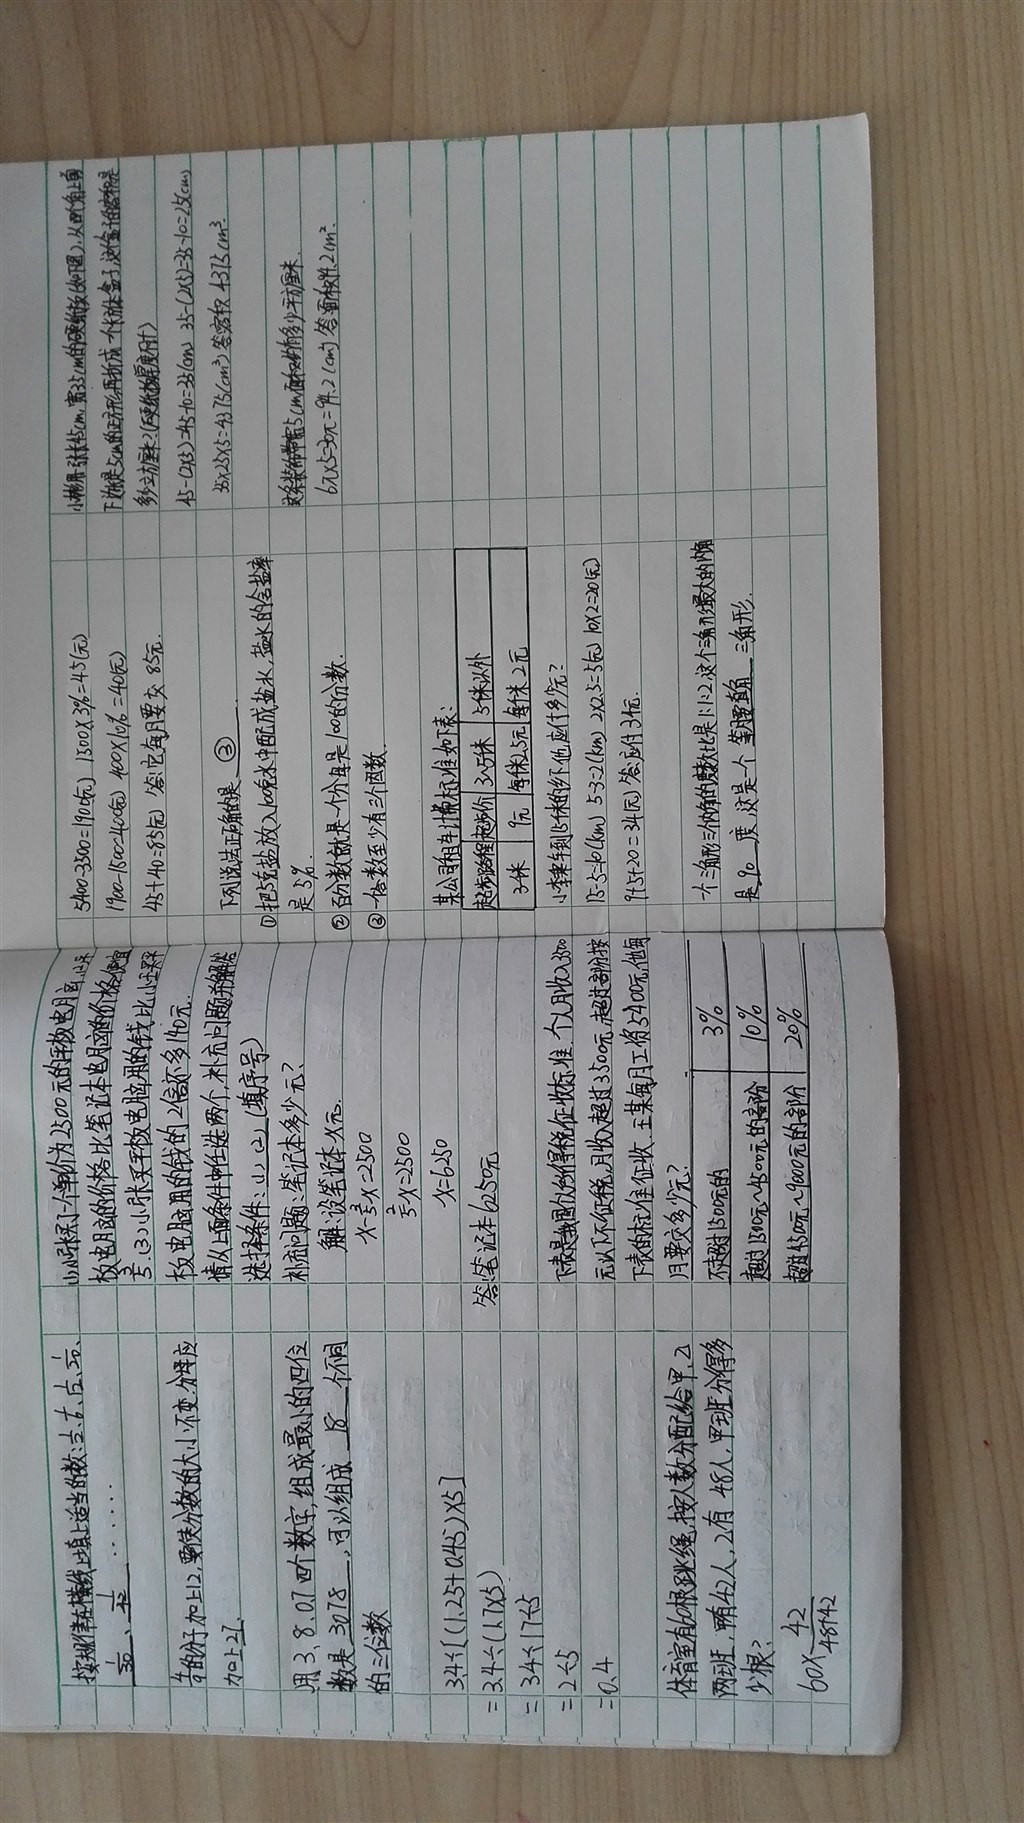 按规律在横线上填上适当的数:1/2、1/6、1/12、1/20、
1/30、1/42……
的分子加上12,要使分数的大小不变,分母应
加上27.
用3、8、0、7四个数字,组成最小的四位
数是 3078 ,可以组成 18 个不同
的三位数
3.4÷[(1.25+0.45)×5]
=3.4÷(1.7×5)
=3.4÷1.7÷5
=2÷5
=0.4
体育室有60根跳绳,按人数分配给甲、乙
两班,甲有42人,乙有48人,甲班分得多
少根?
60×42/48+42
(1)小张买了一个单价为2500元的平板电脑
板电脑的价格比笔记本电脑的价格便宜
3/5.(3)小张买平板电脑用的钱比小王买平
板电脑用的钱的2倍还多140元.
请从上面条件中任选两个,补充问题并解答
选择条件:(1)(2)(填序号)
补充问题:笔记本多少元?
解:设笔记本x元.
x-3/5x=2500
2/5x=2500
x=6250
答:笔记本6250元
下表是我国个人所得税征收标准,个人月收入3500
元以下不征税,月收入超过3500元,超过部分按
下表的标准征收,王某每月工资5400元,他每
月要交多少元?
不超过1500元的 3%
超过1500元~4500元的部分 10%
超过4500元~9000元的部分 20%
5400-3500=1900(元) 1500×3%=45(元)
1900-1500=400(元) 400×10%=40(元)
45+40=85(元) 答:它每月要交85元.
下列说法正确的是 ③ .
①把5克盐放入100克水中配成盐水,盐水的含盐率
是5%.
②百分数就是一个分母是100的分数.
③一个合数至少有三个因数.
某公司租车计价标准如下表:
起步路程 起步价 3~5千米 5千米以外
3千米 9元 每千米2.5元 每千米2元
小李乘车到15千米的外,他应付多少元?
15-5=10(km) 5-3=2(km) 2×2.5=5(元) 10×2=20(元)
9+5+20=34(元) 答:应付34元.
一个三角形三个内角的度数比是1:1:2,这个三角形最大的内角
是 90 度,这是一个 等腰直角 三角形.
小彬用一张长45cm,宽35cm的硬纸板(如下图),从四个角上剪
下边长是5cm的正方形,再折成一个长方体盒子,这个盒子的容积是
多少立方厘米?(硬纸板厚度不计)
45-(2×5)=45-10=35(cm) 35-(2×5)=35-10=25(cm)
35×25×5=4375(cm³) 答:容积4375cm³.
5cm,面积增加多少平方厘米.
6π×5=30π=94.2(cm) 答:面积94.2cm².